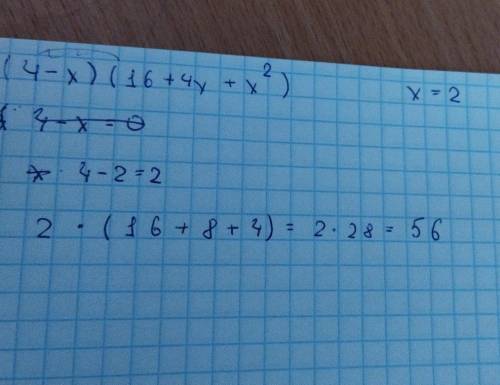 (4-x)(16+4x+x²) x=2
4-x=0
x 4-2=2
2 · (16+8+4)=2·28=56